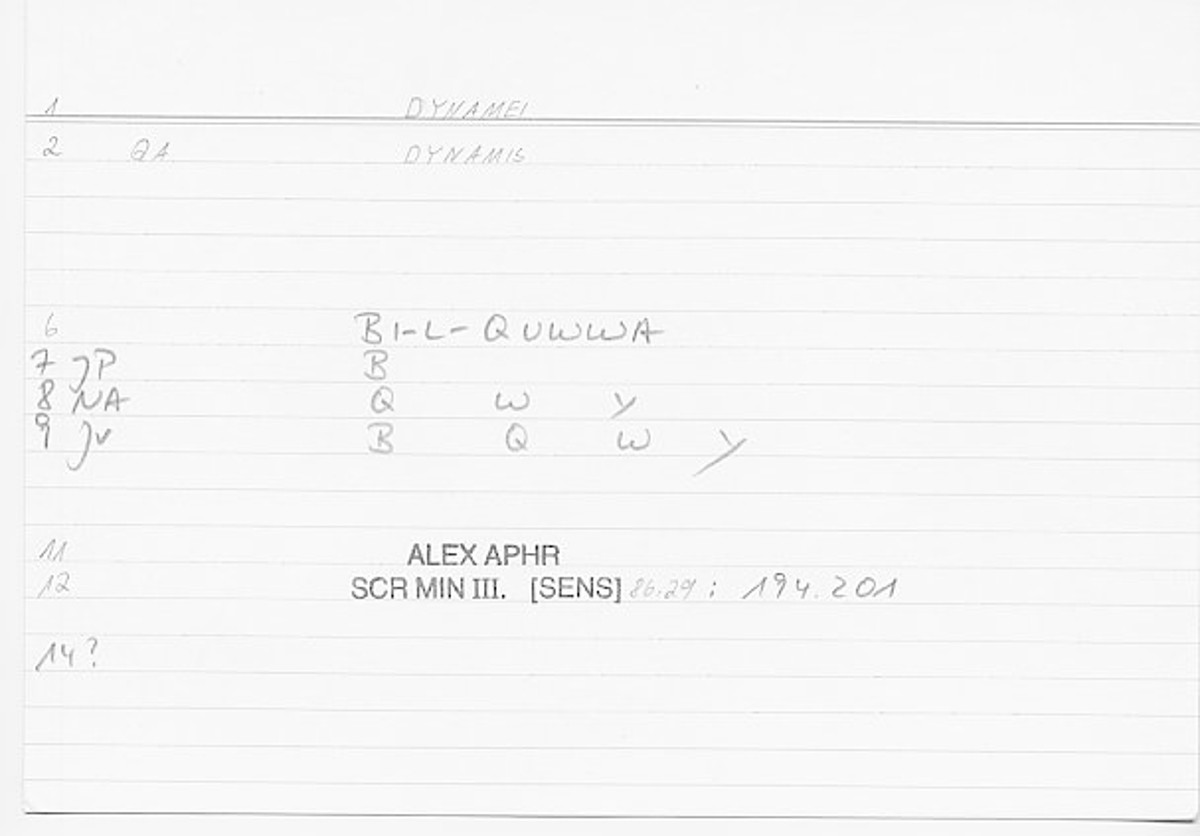 1 DYNAMEI
2 QA DYNAMIS
6 BI-L-QUWWA
7 JP B
8 NA Q W Y
9 JV B Q W Y
11 ALEX APHR
12 SCR MIN III. [SENS] 86.29 : 194.201
14?